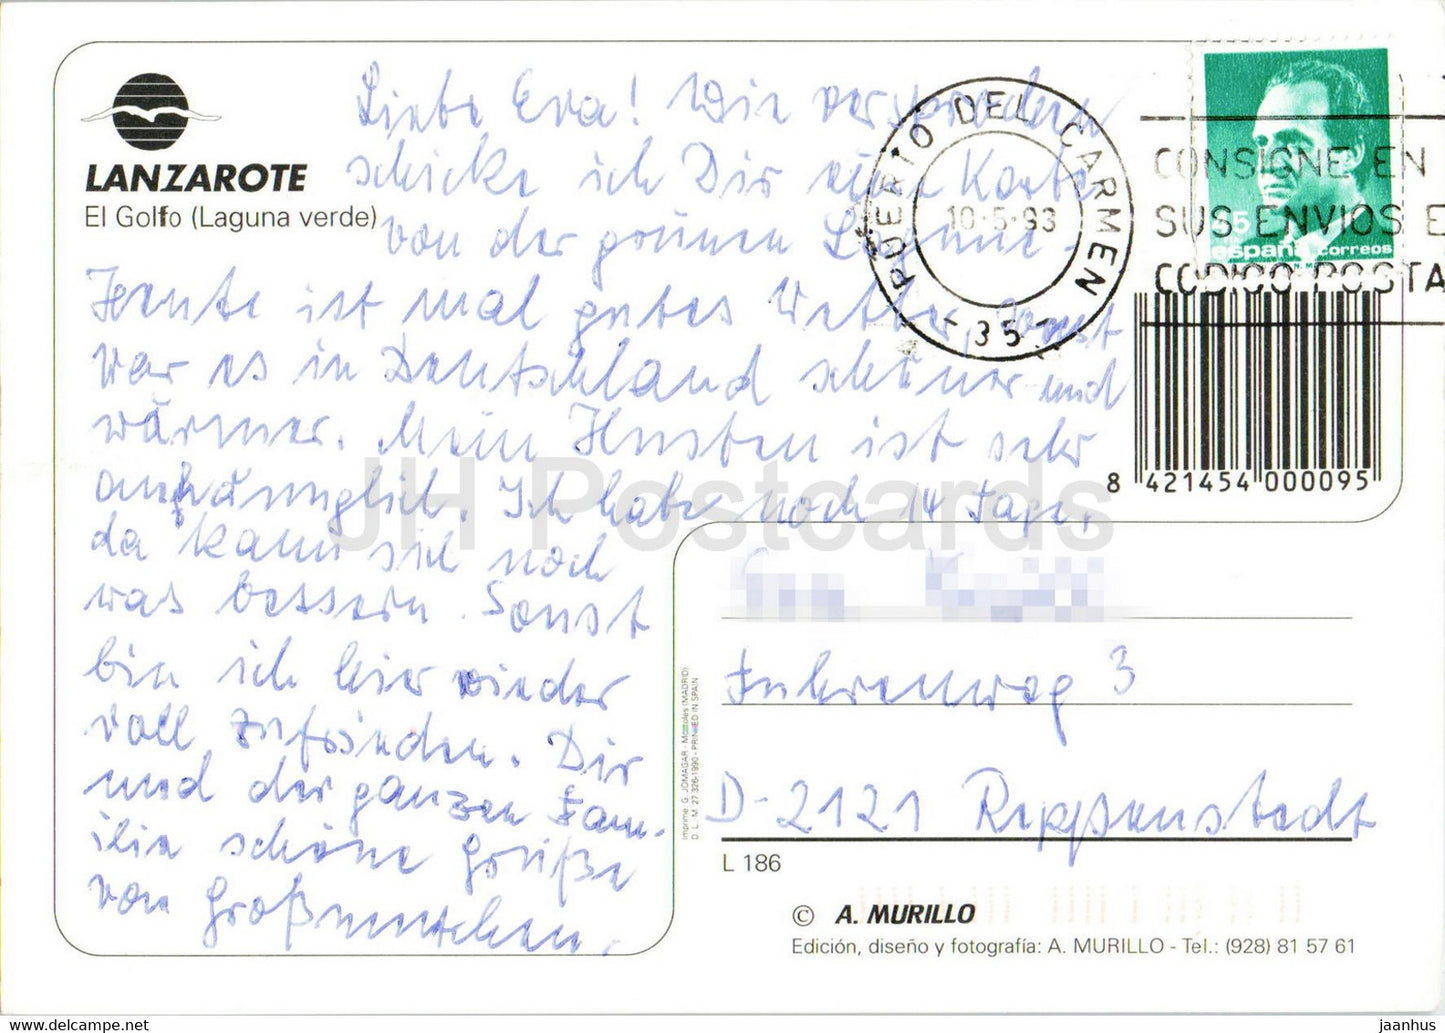 LANZAROTE
El Golfo (Laguna verde)
Liebe Eva! Wie versprochen
schicke ich Dir eine Karte
von der grünen Lagune.
Heute ist mal gutes Wetter, sonst
war es in Deutschland schöner und
wärmer. Mein Husten ist sehr
anhänglich. Ich habe noch 14 Tage,
da kann sich noch
was bessern. Sonst
bin ich hier wieder
voll zufrieden. Dir
und der ganzen Fam-
ilie schöne Grüße
von Großmuttchen.
PUERTO DEL CARMEN
10-5-93
- 35 -
CONSIGNE EN
SUS ENVIOS E
CODIGO POSTA
España correos
8 421454 000095
JH Postcards
3
D-2121 Reppenstedt
Imprime: G. JOMAGAR - Mostoles (MADRID)
D. L. M. 27.326-1990 - PRINTED IN SPAIN
L 186
© A. MURILLO
Edición, diseño y fotografía: A. MURILLO - Tel.: (928) 81 57 61
jaanhus